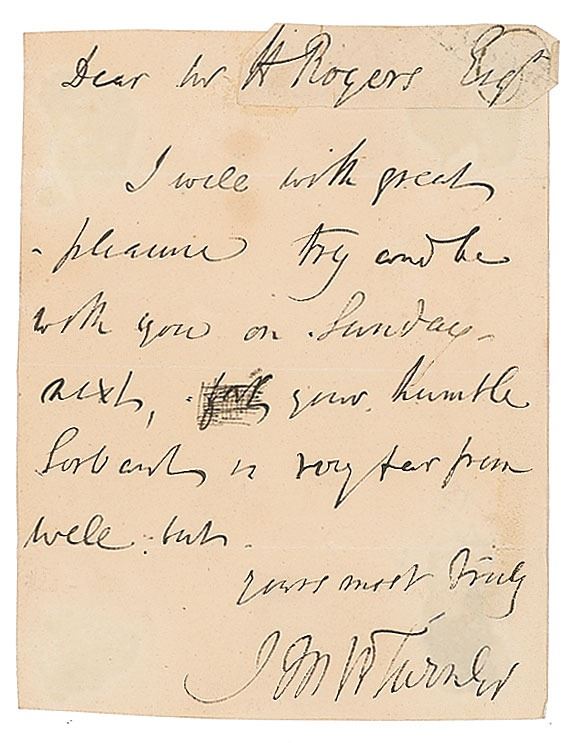 Dear Mr H Rogers Esqr
I will with great
pleasure try and be
with you on Sunday
next, your humble
Servant is very far from
well but
yours most truly
J M W Turner